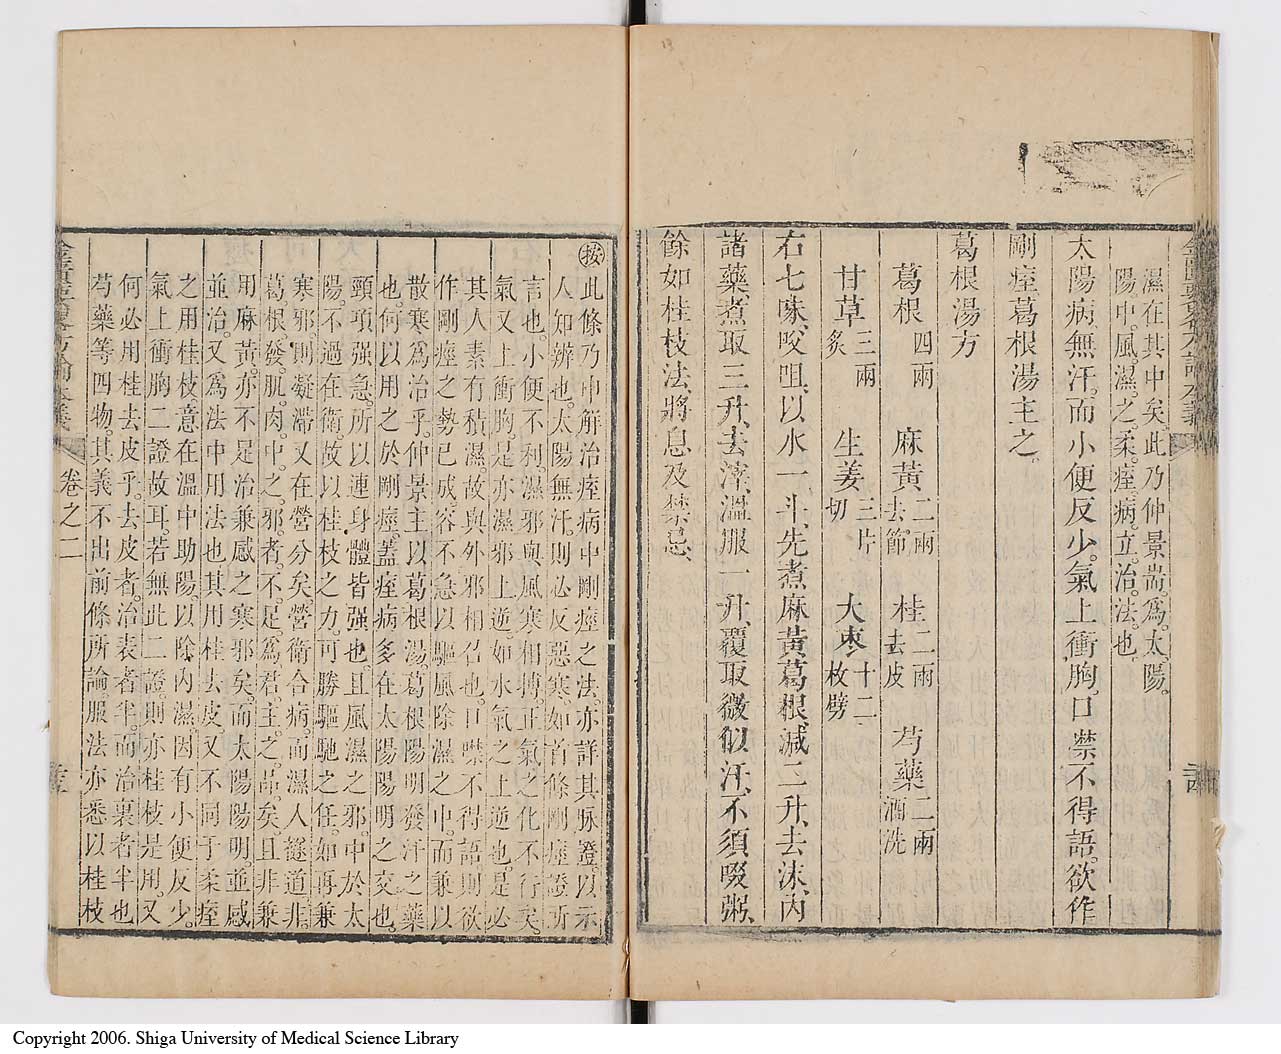 濕在其中矣。此乃仲景耑爲太陽。
陽中。風濕之柔。痙病。立治法也
太陽病、無汗。而小便反少。氣上衝胸。口禁不得語。欲作
剛痙。葛根湯主之。
葛根湯方
葛根四兩 麻黃二兩去節 桂二兩去皮 芍藥二兩酒洗
甘草三兩炙 生姜三片切 大枣十二枚劈
右七味、㕮咀、以水一斗、先煮麻黃葛根、減二升、去沫、內
諸藥、煮取三升、去滓、溫服一升、覆取微似汗、不須啜粥、
餘如桂枝法、將息及禁忌、
按此條乃申解治痙病中剛痙之法。亦詳其脉證。以示
人知辨也。太陽無汗。則必反惡寒。如首條剛痙證所
言也。小便不利。濕邪與風寒相搏。正氣之化不行矣。
氣又上衝胸。是亦濕邪上逆。如水氣之上逆也。是必
其人素有積濕。故與外邪相召也。口噤不得語。則欲
作剛痙之勢已成。容不急以驅風除濕之中。而兼以
散寒爲治乎。仲景主以葛根湯。葛根陽明發汗之藥
也。何以用之於剛痙。蓋痙病多在太陽陽明之交也
頸項强急。所以連身體皆强也。且風濕之邪。中於太
陽。不過在衛。故以桂枝之力。可勝驅馳之任。如再兼
寒邪。則凝滞又在營分矣。營衛合病。而濕人鏸道非。
葛根發。肌。肉。中。之。邪者。不足。爲君。主之。品。矣。且非兼
用麻黃。亦不足治兼感之寒邪矣。而太陽陽明。並感
並治。又爲法中用法也其用桂去皮。又不同于柔痙
之用桂枝。意在溫中助陽。以除內濕。因有小便反少。
氣上衝胸二證故耳。若無此二證。則亦桂枝是用。又
何必用桂去皮乎。去皮者。治表者半。而治裏者半也
芍藥等四物。其義不出前條所論服法亦悉以桂枝
卷之二
Copyright 2006. Shiga University of Medical Science Library